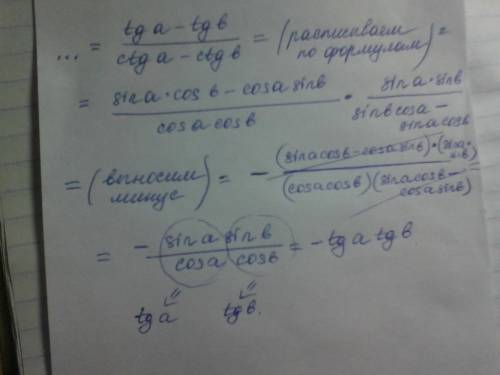 ... = tg a - tg b / ctg a - ctg b = (расписываем по формулам) =
= sin a · cos b - cos a sin b / cos a cos b · sin a · sin b / sin b cos a - sin a cos b
= (выносим минус) = - (sin a cos b - cos a sin b) · (sin a · sin b) / (cos a cos b) (sin a cos b - cos a sin b) =
= - sin a sin b / cos a cos b = - tg a tg b
tg a tg b.